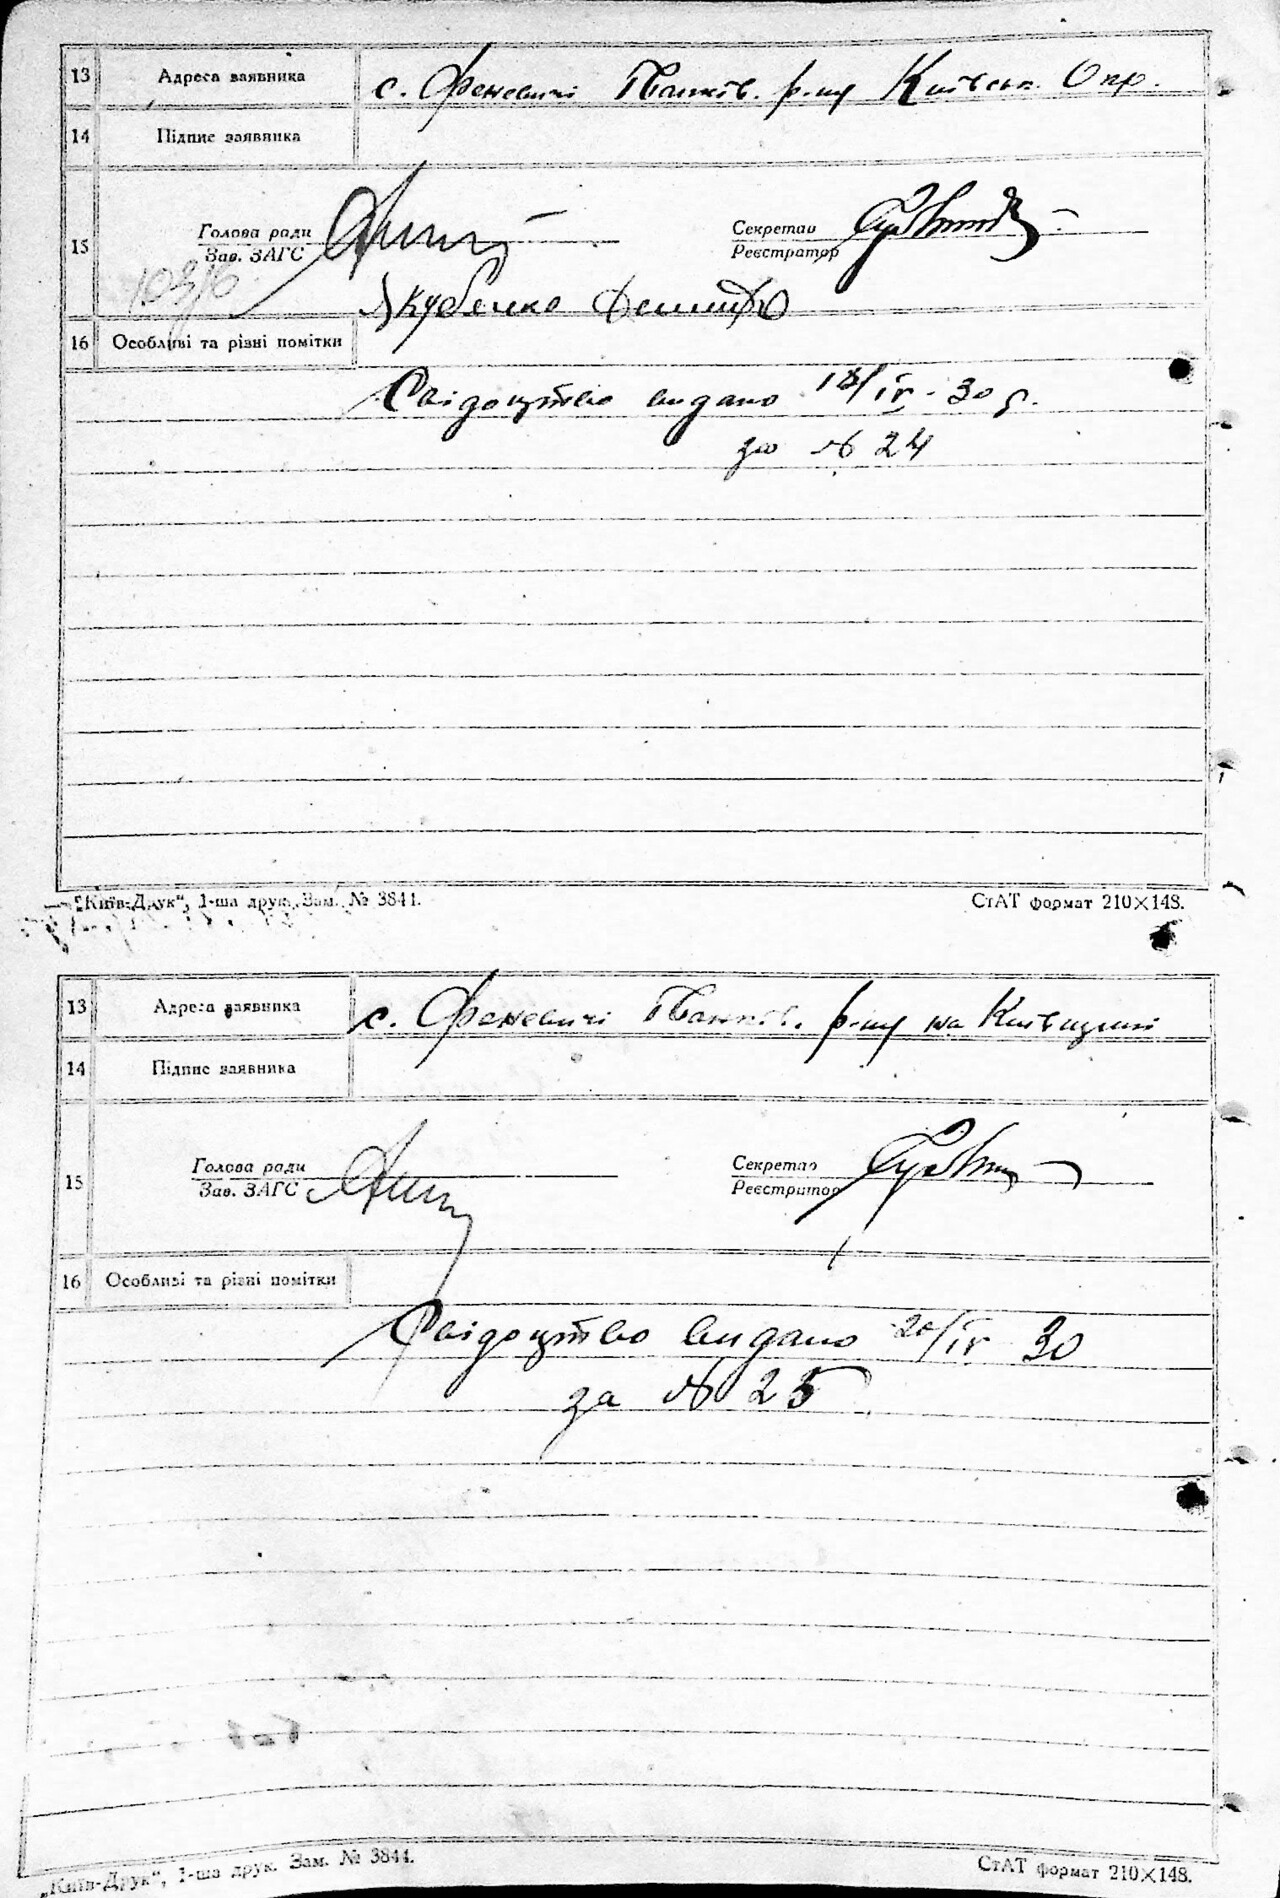 13 Адреса заявника с. Феневичі Іванків. р-ну Київськ. Окр.
14 Підпис заявника
15 Голова ради Секретар
Зав. ЗАГС Реєстратор
Якубенко
16 Особливі та різні помітки
Свідоцтво видано 18/IV - 30 р.
за № 24
„Київ-Друк“, 1-ша друк. Зам. № 3844. СтАТ формат 210×148.
13 Адреса заявника с. Феневичі Іванків. р-ну на Київщині
14 Підпис заявника
15 Голова ради Секретар
Зав. ЗАГС Реєстратор
16 Особливі та різні помітки
Свідоцтво видано 20/IV 30
за № 25
„Київ-Друк“, 1-ша друк. Зам. № 3844. СтАТ формат 210×148.